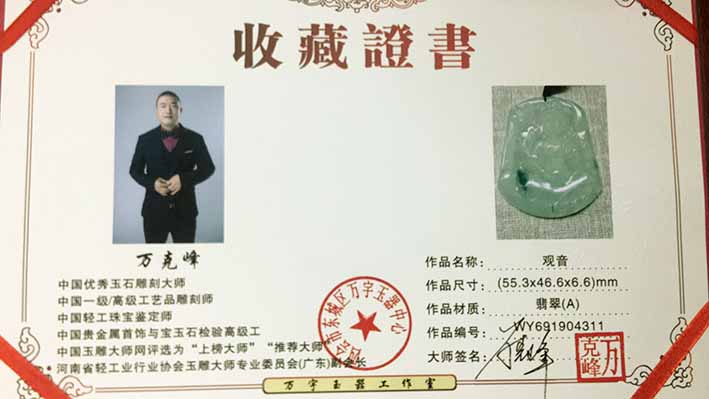 收藏證書
万克峰
中国优秀玉石雕刻大师
中国一级/高级工艺品雕刻师
中国轻工珠宝鉴定师
中国贵金属首饰与宝玉石检验高级工
中国玉雕大师网评选为“上榜大师”“推荐大师”
河南省轻工业行业协会玉雕大师专业委员会(广东)副会长
四会市东城区万字玉器中心
作品名称: 观音
作品尺寸: (55.3x46.6x6.6)mm
作品材质: 翡翠(A)
作品编号: WY691904311
大师签名:
万克峰
万字玉器工作室